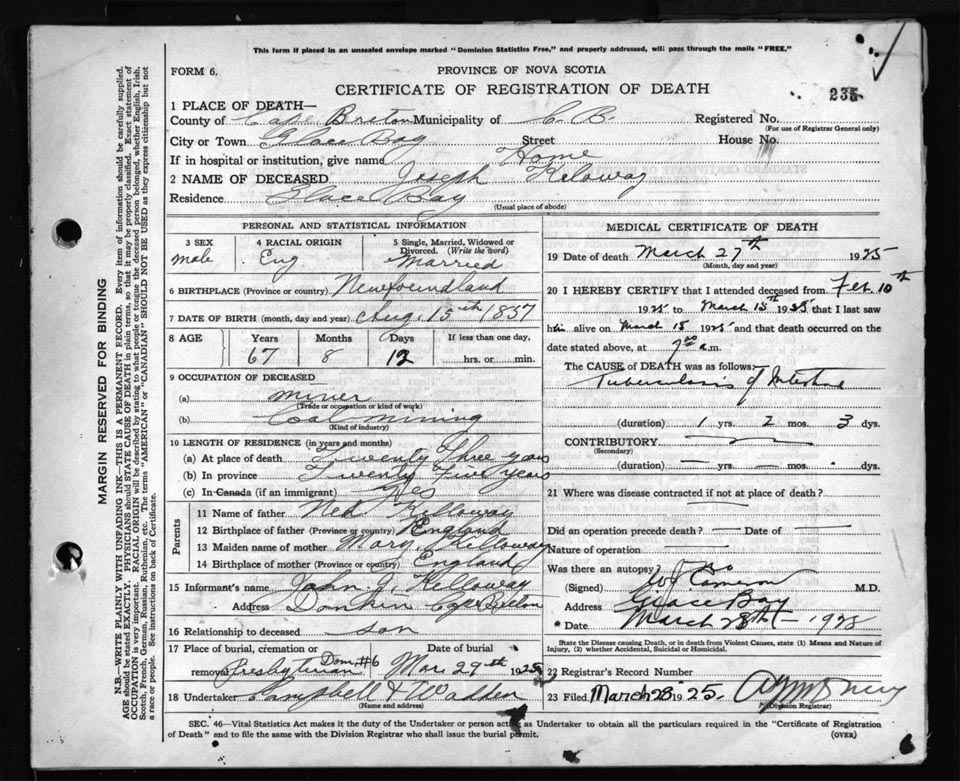 This form if placed in an unsealed envelope marked "Dominion Statistics Free," and properly addressed, will pass through the mails "FREE."
FORM 6.
PROVINCE OF NOVA SCOTIA
CERTIFICATE OF REGISTRATION OF DEATH
235
1 PLACE OF DEATH—
County of Cape Breton Municipality of C. B. Registered No.
(For use of Registrar General only)
City or Town Glace Bay Street House No.
If in hospital or institution, give name Home
2 NAME OF DECEASED Joseph Keloway
Residence Glace Bay
(Usual place of abode)
PERSONAL AND STATISTICAL INFORMATION
3 SEX 4 RACIAL ORIGIN 5 Single, Married, Widowed or Divorced. (Write the word)
male Eng Married
6 BIRTHPLACE (Province or country) Newfoundland
7 DATE OF BIRTH (month, day and year) Aug. 15th 1857
8 AGE Years Months Days If less than one day,
67 8 12 hrs. or min.
9 OCCUPATION OF DECEASED
(a) miner
(Trade or occupation or kind of work)
(b) Coal mining
(Kind of industry)
10 LENGTH OF RESIDENCE (in years and months)
(a) At place of death Twenty Three years
(b) In province Twenty Five years
(c) In Canada (if an immigrant) Yes
Parents
11 Name of father Ned Kelloway
12 Birthplace of father (Province or country) England
13 Maiden name of mother Mary Kelloway
14 Birthplace of mother (Province or country) England
15 Informant's name John J. Kelloway
Address Donkin Cape Breton
16 Relationship to deceased son
17 Place of burial, cremation or removal Date of burial
Presbyterian Dom #6 Mar 29th 1925
18 Undertaker Campbell & Wadden
(Name and address)
MEDICAL CERTIFICATE OF DEATH
19 Date of death March 27th 1925
(Month, day and year)
20 I HEREBY CERTIFY that I attended deceased from Feb. 10th
1925 to March 15th 1925 that I last saw
him alive on March 15 1925 and that death occurred on the
date stated above, at a.m.
The CAUSE of DEATH was as follows:
Tuberculosis of Intestine
(duration) 1 yrs. 2 mos. 3 dys.
CONTRIBUTORY
(Secondary)
(duration) — yrs. — mos. — dys.
21 Where was disease contracted if not at place of death?
Did an operation precede death? — Date of —
Nature of operation
Was there an autopsy? No
(Signed) Cameron M.D.
Address Glace Bay
Date March 28th — 1925
State the Disease causing Death, or in death from Violent Causes, state (1) Means and Nature of Injury, (2) whether Accidental, Suicidal or Homicidal.
22 Registrar's Record Number
23 Filed March 28 1925.
(Division Registrar)
SEC. 46—Vital Statistics Act makes it the duty of the Undertaker or person acting as Undertaker to obtain all the particulars required in the "Certificate of Registration
of Death" and to file the same with the Division Registrar who shall issue the burial permit.
(OVER)
MARGIN RESERVED FOR BINDING
N.B.—WRITE PLAINLY WITH UNFADING INK—THIS IS A PERMANENT RECORD. Every item of information should be carefully supplied.
AGE should be stated EXACTLY. PHYSICIANS should STATE CAUSE OF DEATH in plain terms, so that it may be properly classified. Exact statement of
OCCUPATION is very important. RACIAL ORIGIN will be described by stating to what people or tongue the deceased person belonged, whether English, Irish,
Scotch, French, German, Russian, Ruthenian, etc. The terms "AMERICAN" or "CANADIAN" SHOULD NOT BE USED as they express citizenship but not
a race or people. See instructions on back of Certificate.